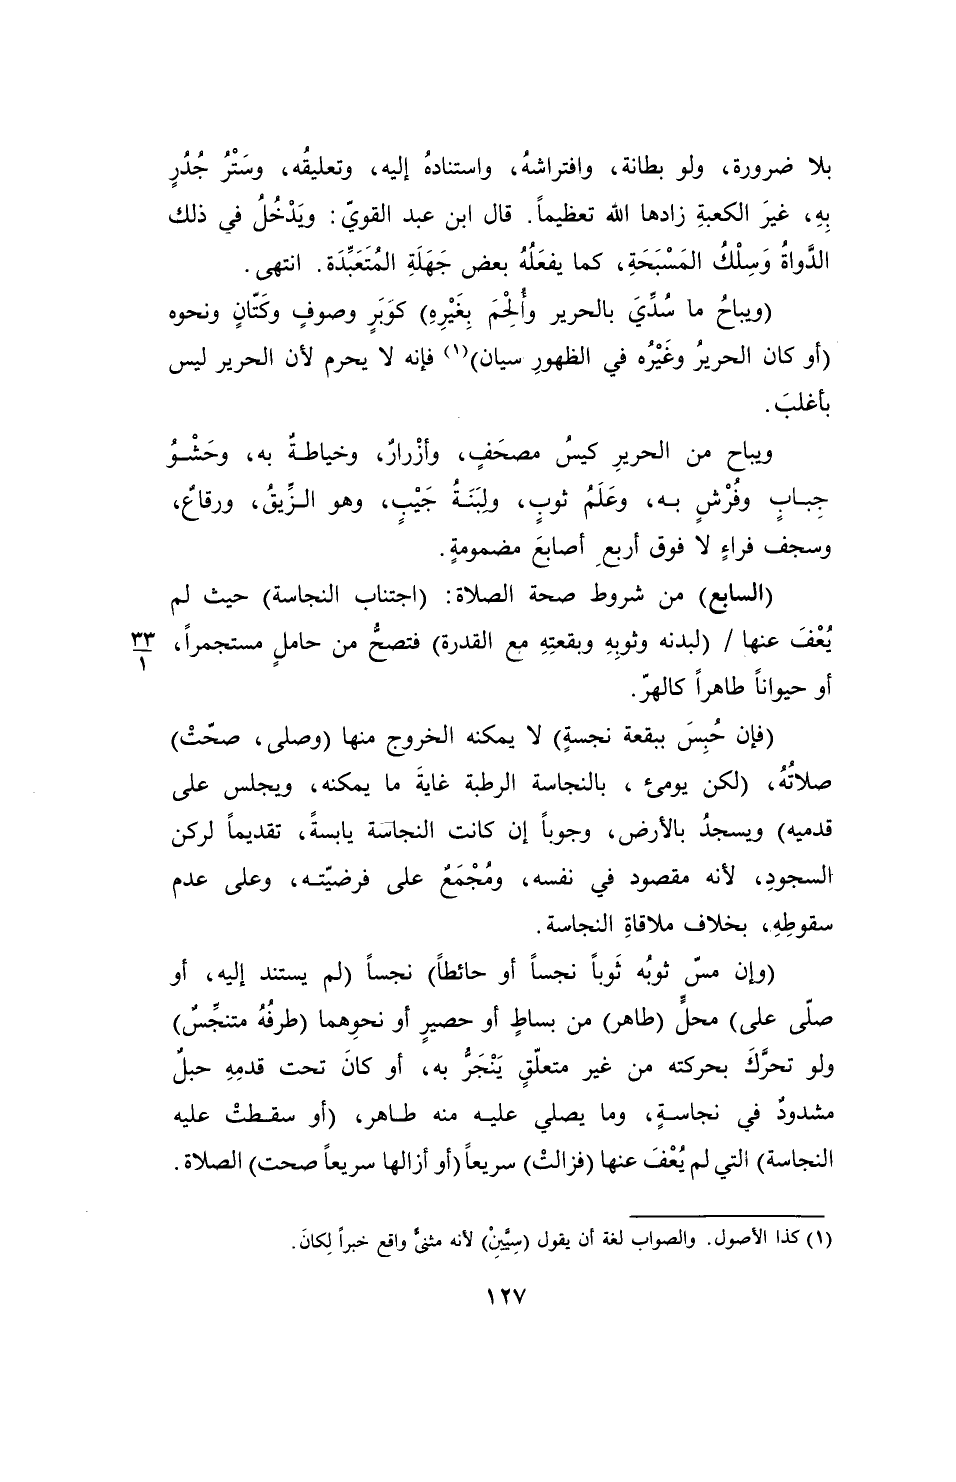 بلا ضرورة، ولو بطانة، وافتراشهُ، واستنادهُ إليه، وتعليقُه، وسَتْرُ جُدُرٍ
بِهِ، غيرَ الكعبةِ زادها الله تعظيماً. قال ابن عبد القويّ: ويَدْخُلُ في ذلك
الدَّواةُ وَسِلْكُ المَسْبَحَةِ، كما يفعَلُهُ بعض جَهَلَةِ المُتَعَبِّدَة. انتهى.
(ويباحُ ما سُدِّيَ بالحرير وأُلْحِمَ بِغَيْرِهِ) كوَبَرٍ وصوفٍ وكَتّانٍ ونحوه
(أو كان الحريرُ وغَيْرُه في الظهورِ سيان)(١) فإنه لا يحرم لأن الحرير ليس
بأغلبَ.
ويباح من الحريرِ كيسُ مصحَفٍ، وأزْرارٌ، وخياطةٌ به، وحَشْوُ
جِبابٍ وفُرْشٍ به، وعَلَمُ ثوبٍ، ولِبَنَةُ جَيْبٍ، وهو الزِّيقُ، ورقاعٌ،
وسجف فراءٍ لا فوق أربعِ أصابعَ مضمومةٍ.
(السابع) من شروط صحة الصلاة: (اجتناب النجاسة) حيث لم
يُعْفَ عنها / (لبدنه وثوبِهِ وبقعتِهِ مع القدرة) فتصحُّ من حاملٍ مستجمراً،
٣٣
١
أو حيواناً طاهراً كالهرّ.
(فإن حُبِسَ ببقعة نجسةٍ) لا يمكنه الخروج منها (وصلى، صحّتْ)
صلاتُهُ، (لكن يومئ ، بالنجاسة الرطبة غايةَ ما يمكنه، ويجلس على
قدميه) ويسجدُ بالأرض، وجوباً إن كانت النجاسة يابسةً، تقديماً لركن
السجودِ، لأنه مقصود في نفسه، ومُجْمَعٌ على فرضيّته، وعلى عدم
سقوطِهِ، بخلاف ملاقاةِ النجاسة.
(وإن مسّ ثوبُه ثَوباً نجساً أو حائطاً) نجساً (لم يستند إليه، أو
صلّى على) محلٍّ (طاهر) من بساطٍ أو حصيرٍ أو نحوِهما (طرفُهُ متنجِّسٌ)
ولو تحرَّكَ بحركته من غير متعلّقٍ يَنْجَرُّ به، أو كانَ تحت قدمِهِ حبلٌ
مشدودٌ في نجاسةٍ، وما يصلي عليه منه طاهر، (أو سقطتْ عليه
النجاسة) التي لم يُعْفَ عنها (فزالتْ) سريعاً (أو أزالها سريعاً صحت) الصلاة.
(١) كذا الأصول. والصواب لغة أن يقول (سِيَّيْنِ) لأنه مثنىً واقع خبراً لِكانَ.
١٢٧